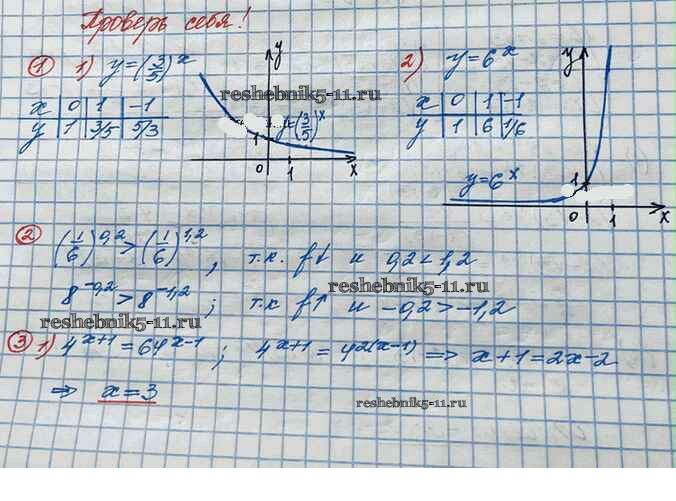 Проверь себя!
① 1) y=(3/5)^x
x 0 1 -1
y 1 3/5 5/3
y
y=(3/5)^x
1
0 1 x
2) y=6^x
x 0 1 -1
y 1 6 1/6
y
y=6^x
1
0 1 x
reshebnik5-11.ru
② (1/6)^0,2 > (1/6)^1,2 ; т.к. f↓ и 0,2<1,2
reshebnik5-11.ru
8^-0,2 > 8^-1,2 ; т.к f↑ и -0,2>-1,2
reshebnik5-11.ru
③ 1) 4^x+1 = 64^x-1 ; 4^x+1 = 4^2(x-1) => x+1=2x-2
=> x=3
reshebnik5-11.ru